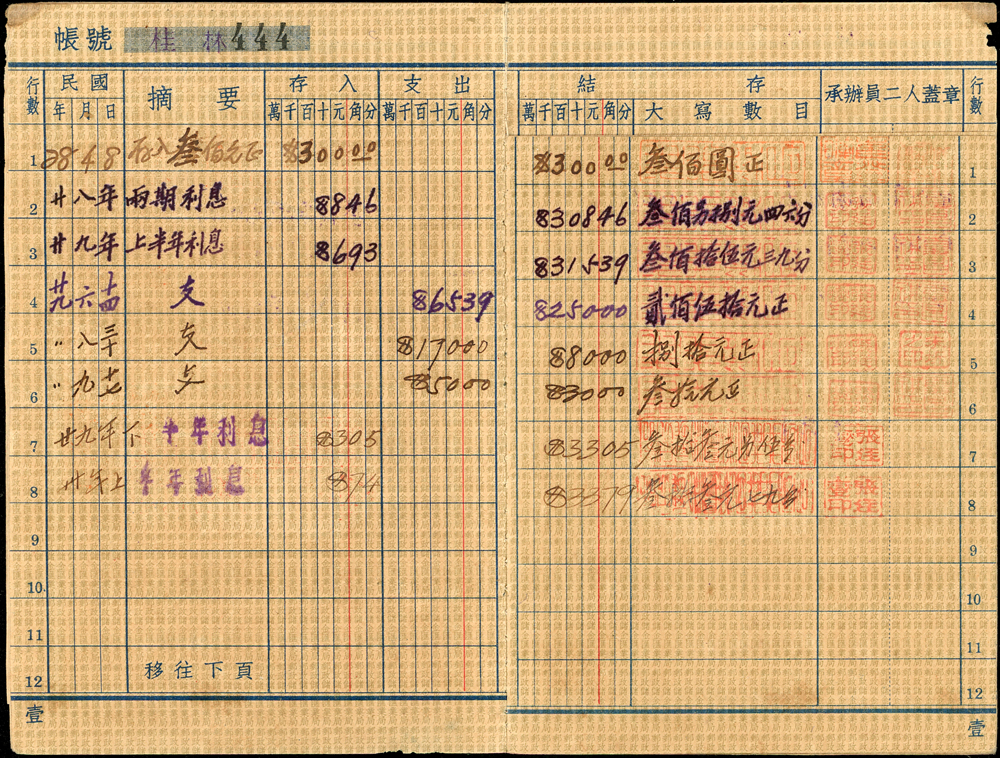 帳號 桂林 444
行數 民國 摘要 存入 支出 結存 承辦員二人蓋章 行數
年 月 日 萬千百十元角分 萬千百十元角分 萬千百十元角分 大寫數目
1 28 4 8 存入叁佰元正 $300.00 $300.00 叁佰圓正 1
2 廿八年 兩期利息 $846 $30846 叁佰另捌元四六分 2
3 廿九年 上半年利息 $693 $31539 叁佰拾伍元三九分 3
4 廿九 六 支 $6539 $25000 貳佰伍拾元正 4
5 〃 八 支 $17000 $8000 捌拾元正 5
6 〃 九 支 $5000 $3000 叁拾元正 6
7 廿九年下 半年利息 $305 $3305 叁拾叁元另伍分 7
8 卅年上 半年利息 $74 $3379 叁拾叁元七九分 8
9 9
10 10
11 11
12 移往下頁 12
壹 壹